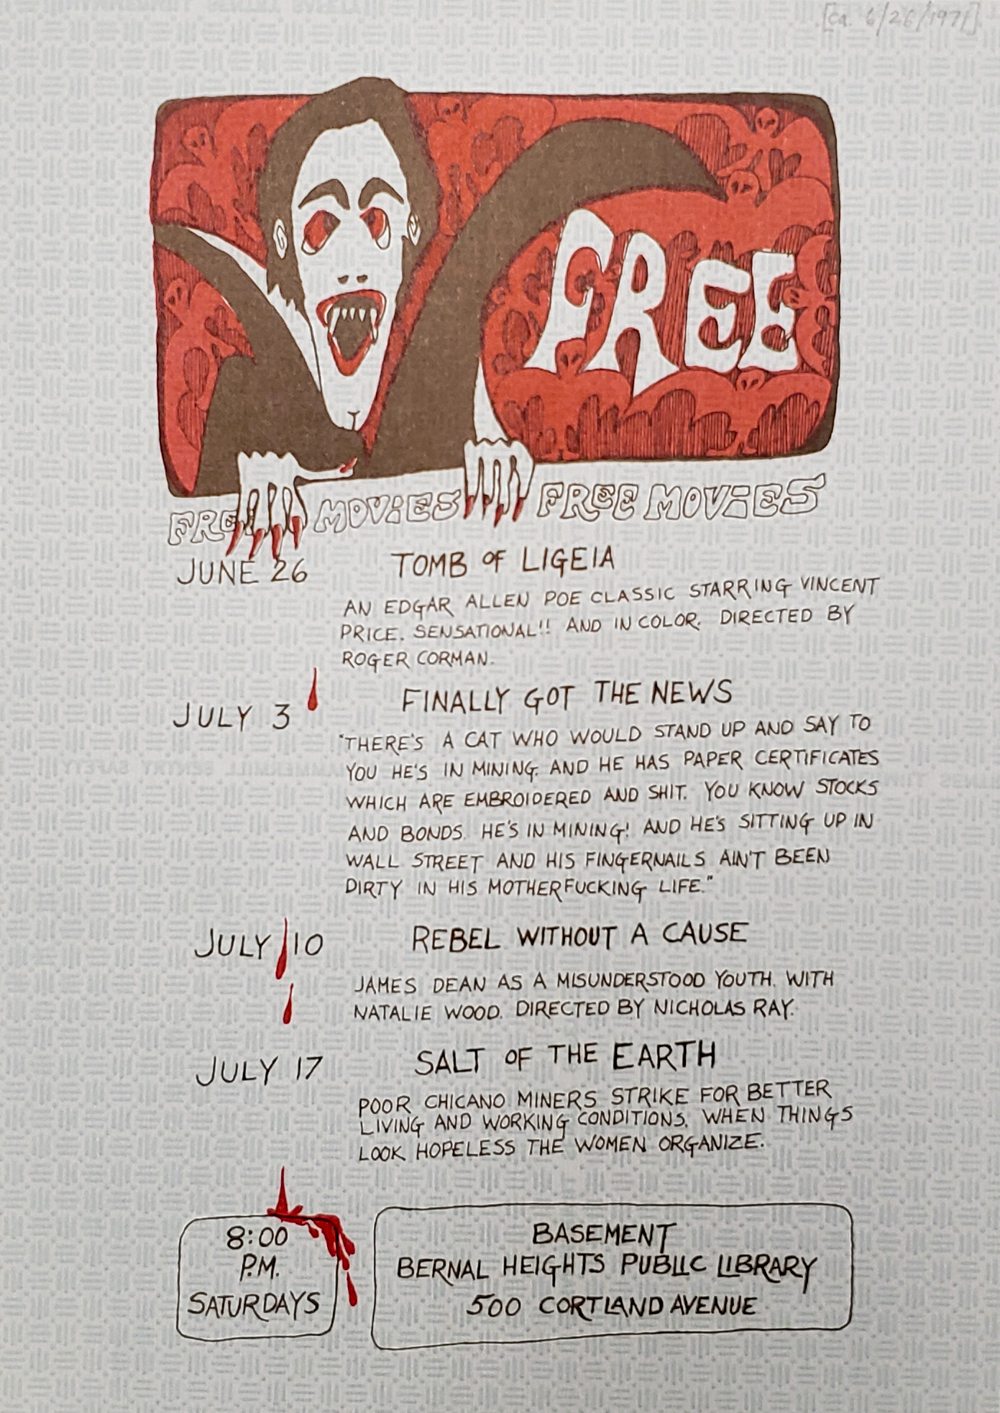 [ca. 6/26/1971]
FREE
FREE MOVIES FREE MOVIES
JUNE 26 TOMB OF LIGEIA
AN EDGAR ALLEN POE CLASSIC STARRING VINCENT
PRICE. SENSATIONAL!! AND IN COLOR. DIRECTED BY
ROGER CORMAN.
JULY 3 FINALLY GOT THE NEWS
"THERE'S A CAT WHO WOULD STAND UP AND SAY TO
YOU HE'S IN MINING. AND HE HAS PAPER CERTIFICATES
WHICH ARE EMBROIDERED AND SHIT. YOU KNOW STOCKS
AND BONDS. HE'S IN MINING! AND HE'S SITTING UP IN
WALL STREET AND HIS FINGERNAILS AIN'T BEEN
DIRTY IN HIS MOTHERFUCKING LIFE."
JULY 10 REBEL WITHOUT A CAUSE
JAMES DEAN AS A MISUNDERSTOOD YOUTH. WITH
NATALIE WOOD. DIRECTED BY NICHOLAS RAY.
JULY 17 SALT OF THE EARTH
POOR CHICANO MINERS STRIKE FOR BETTER
LIVING AND WORKING CONDITIONS. WHEN THINGS
LOOK HOPELESS THE WOMEN ORGANIZE.
8:00
P.M.
SATURDAYS
BASEMENT
BERNAL HEIGHTS PUBLIC LIBRARY
500 CORTLAND AVENUE